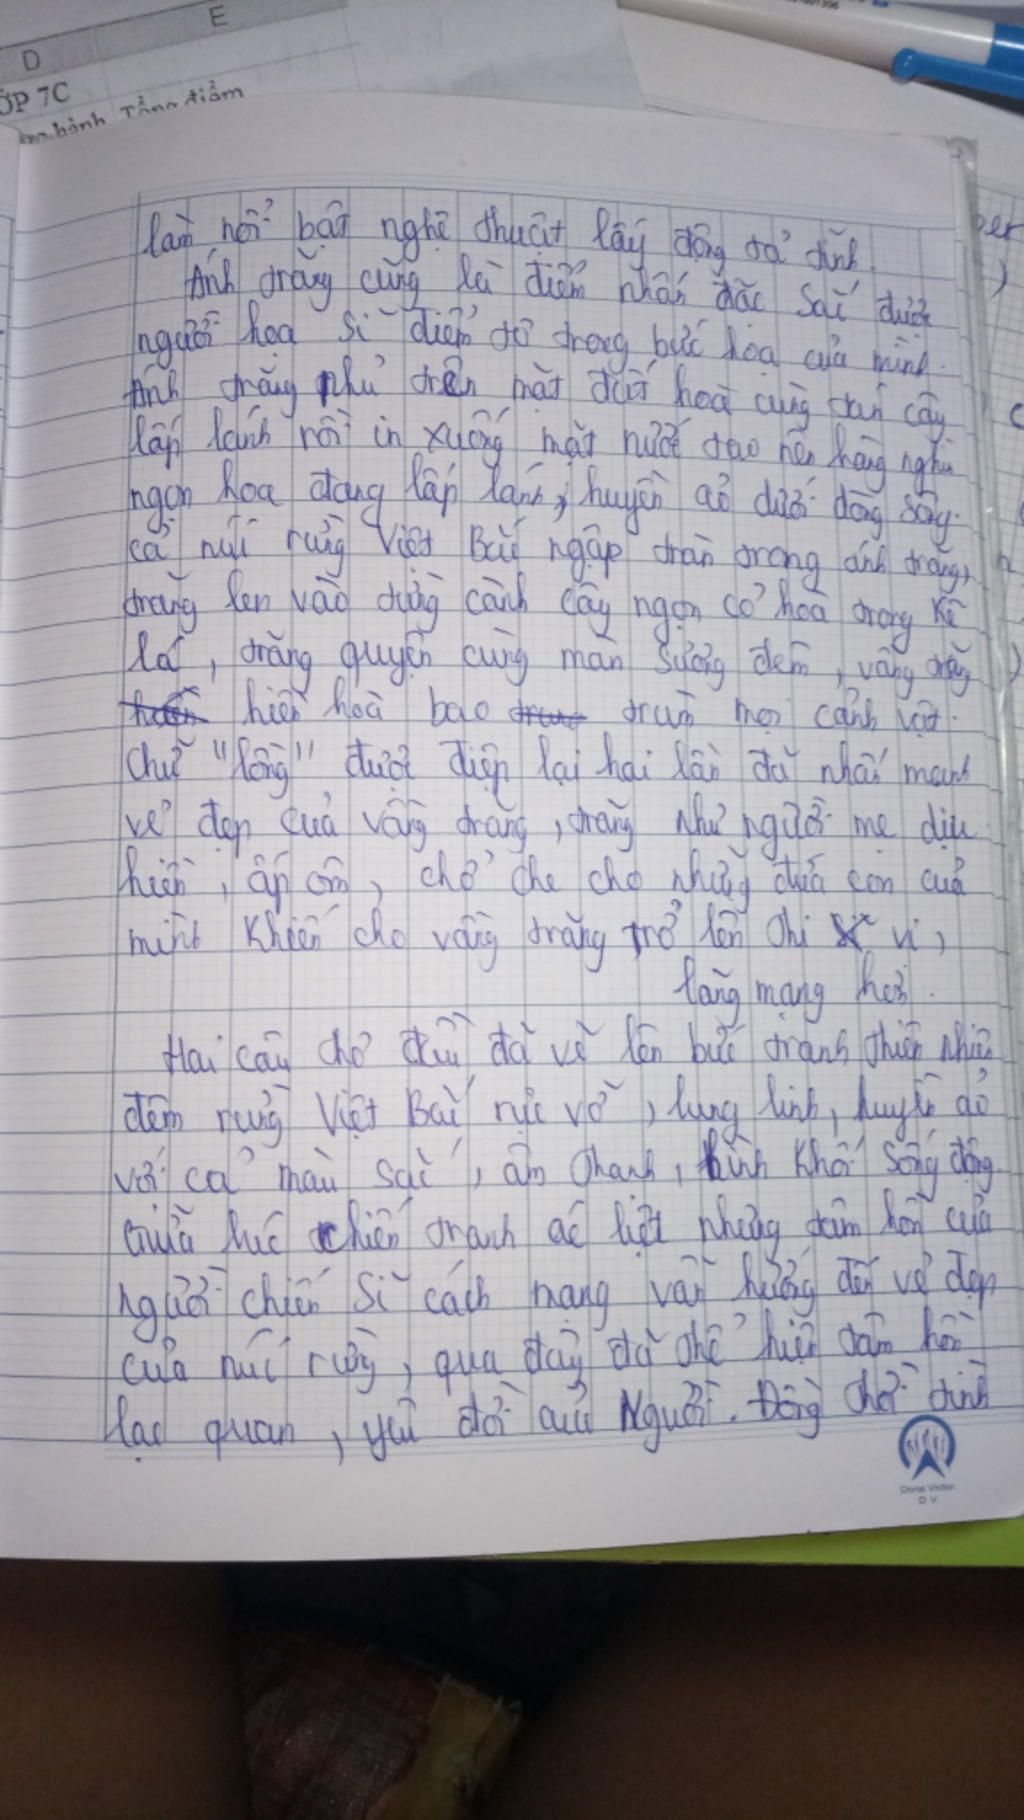 E
D
ỚP 7C
hành Tổng điểm
làm nổi bật nghệ thuật lấy động tả tĩnh.
Ánh trăng cũng là điểm nhấn đặc sắc được
người hoạ sĩ điểm tô trong bức hoạ của mình.
Ánh trăng phủ trên mặt đất hoà cùng tán cây
lấp lánh rồi in xuống mặt nước tạo nên hàng nghìn
ngọn hoa đang lấp lánh, huyền ảo dưới dòng sông.
cả núi rừng Việt Bắc ngập tràn trong ánh trăng,
trăng len vào từng cành cây ngọn cỏ hoà trong kẽ
lá, trăng quyện cùng màn sương đêm, vầng trăng
hiền hoà bao trùm mọi cảnh vật.
Chữ "lồng" được điệp lại hai lần đã nhấn mạnh
vẻ đẹp của vầng trăng, trăng như người mẹ dịu
hiền, ấp ôm, chở che cho những đứa con của
mình khiến cho vầng trăng trở lên thi vị,
lãng mạng hơn.
Hai câu thơ đầu đã vẽ lên bức tranh thiên nhiên
đêm rừng Việt Bắc rực rỡ, lung linh, huyền ảo
với cả màu sắc, âm thanh, hình khối sống động.
Giữa lúc chiến tranh ác liệt nhưng tâm hồn của
người chiến sĩ cách mạng vẫn hướng đến vẻ đẹp
của núi rừng, qua đây đã thể hiện tâm hồn
lạc quan, yêu đời của Người. Đồng thời tình
Dona Victor
DV